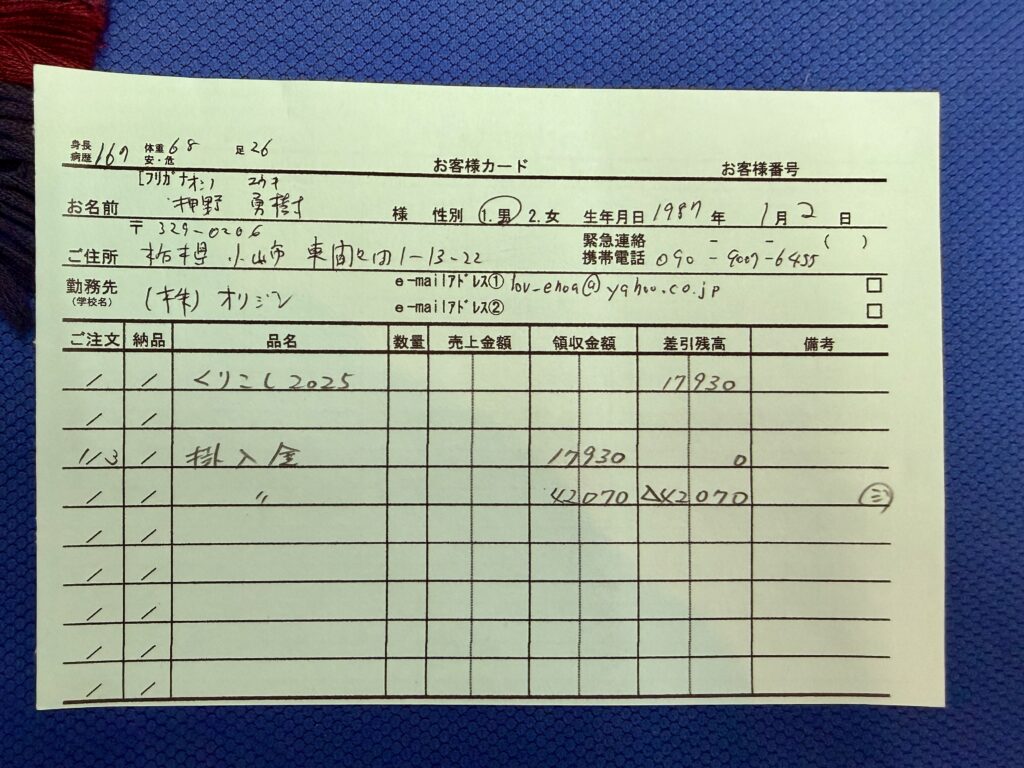 身長 病歴 167 体重 68 安・危 足 26
お客様カード お客様番号
[フリガナ ユウキ
お名前 押野 勇樹 様 性別 1.男 2.女 生年月日 1987年 1月 2日
〒 329-0206
緊急連絡 - - ( )
ご住所 栃木県 小山市 東間々田1-13-22 携帯電話 090-9007-6455
勤務先 (学校名) (株) オリジン
e-mailアドレス① @yahoo.co.jp □
e-mailアドレス② □
ご注文 納品 品名 数量 売上金額 領収金額 差引残高 備考
/ / くりこし2025 17930
/ /
1/3 / 掛入金 17930 0
/ / 〃 42070 △42070 三
/ /
/ /
/ /
/ /
/ /